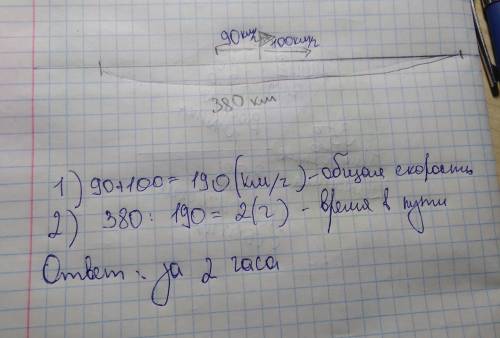 90км/ч 100км/ч
380 км
1) 90+100= 190(км/ч)-общая скорость
2) 380: 190= 2(ч) - время в пути
Ответ: за 2 часа